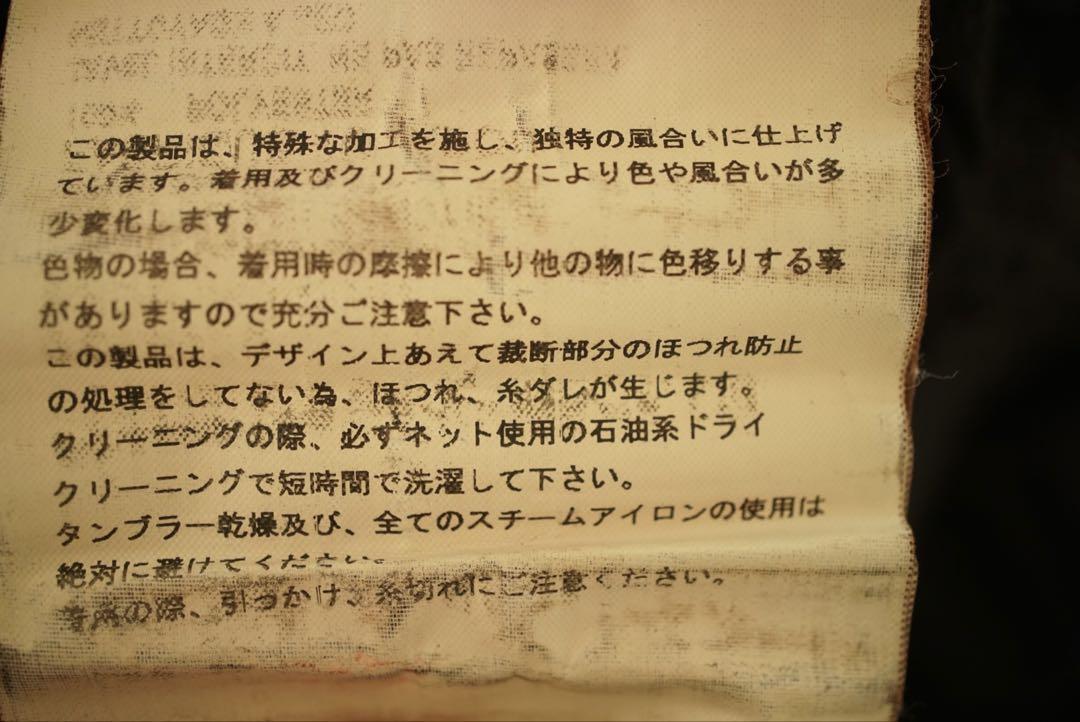 この製品は、特殊な加工を施し、独特の風合いに仕上げ
ています。着用及びクリーニングにより色や風合いが多
少変化します。
色物の場合、着用時の摩擦により他の物に色移りする事
がありますので充分ご注意下さい。
この製品は、デザイン上あえて裁断部分のほつれ防止
の処理をしてない為、ほつれ、糸ダレが生じます。
クリーニングの際、必ずネット使用の石油系ドライ
クリーニングで短時間で洗濯して下さい。
タンブラー乾燥及び、全てのスチームアイロンの使用は
絶対に避けてください。
着用の際、引っかけ、糸切れにご注意ください。